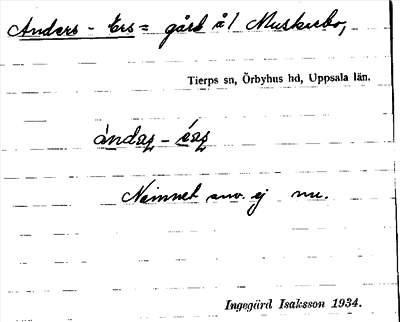 Anders-Ers= gård å/ Muskarbo,
Tierps sn, Örbyhus hd, Uppsala län.
Namnet anv. ej nu.
Ingegärd Isaksson 1934.